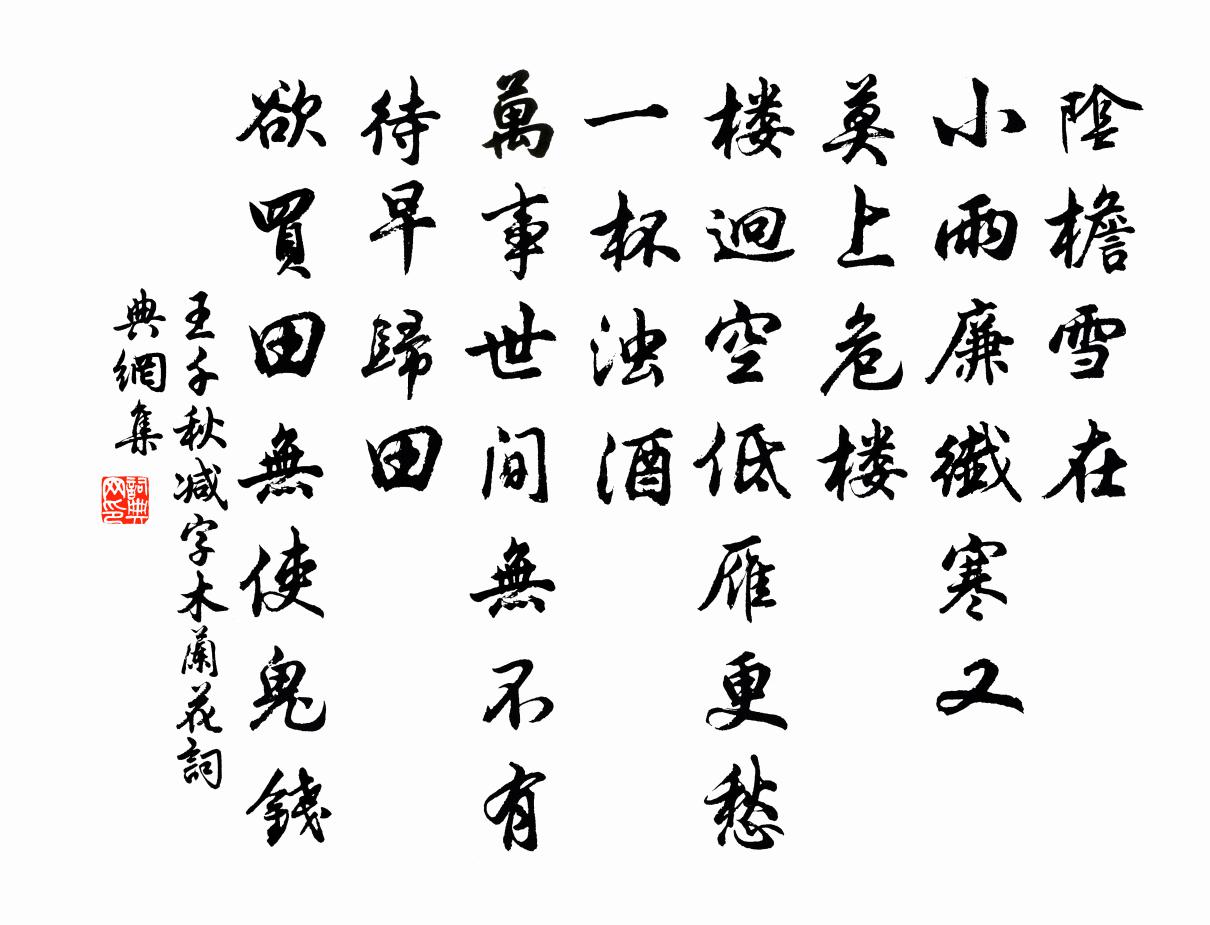 陰檐雪在
小雨廉纖寒又
莫上危楼
楼迥空低雁更愁
一杯浊酒
萬事世间無不有
待早歸田
欲買田無使鬼錢
王千秋减字木蘭花詞
典網集
詞典网印